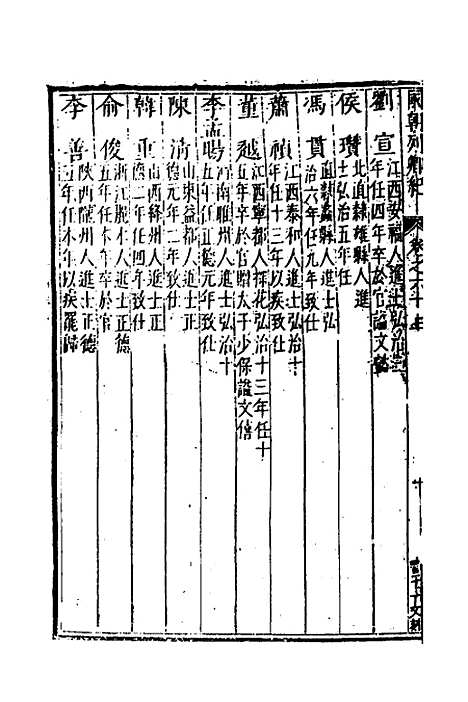 國朝列卿紀 卷之六十
劉宣 江西安福人進士弘治
年任四年卒於官諡文懿
侯瓚 北直隸雄縣人進
士弘治五年任
馮貫 直隸蠡縣人進士弘
治六年任九年致仕
蕭禎 江西泰和人進士弘治十
年任十三年以疾致仕
董越 江西寧都人探花弘治十三年任十
五年卒於官贈太子少保諡文僖
李孟暘 河南睢州人進士弘治十
五年任正德元年致仕
陳清 山東益都人進士正
德元年任二年致仕
韓重 山西絳州人進士正
德二年任四年致仕
俞俊 浙江麗水人進士正德
五年任本年卒於官
李善 陝西隴州人進士正德
五年任本年以疾罷歸